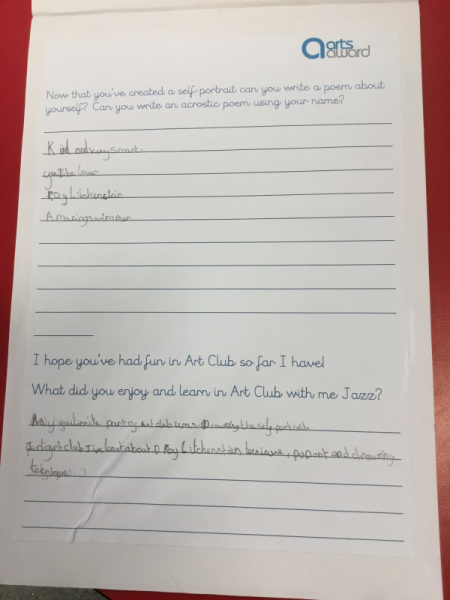 arts
award
Now that you've created a self-portrait can you write a poem about
yourself? Can you write an acrostic poem using your name?
Kind and very smart.
Roy Litchenstein
Amazing swimmer
I hope you've had fun in Art Club so far I have!
What did you enjoy and learn in Art Club with me Jazz?
part of art club was Drawing the self portrait.
art club I've about Roy Litchenstain , pop art and drawing